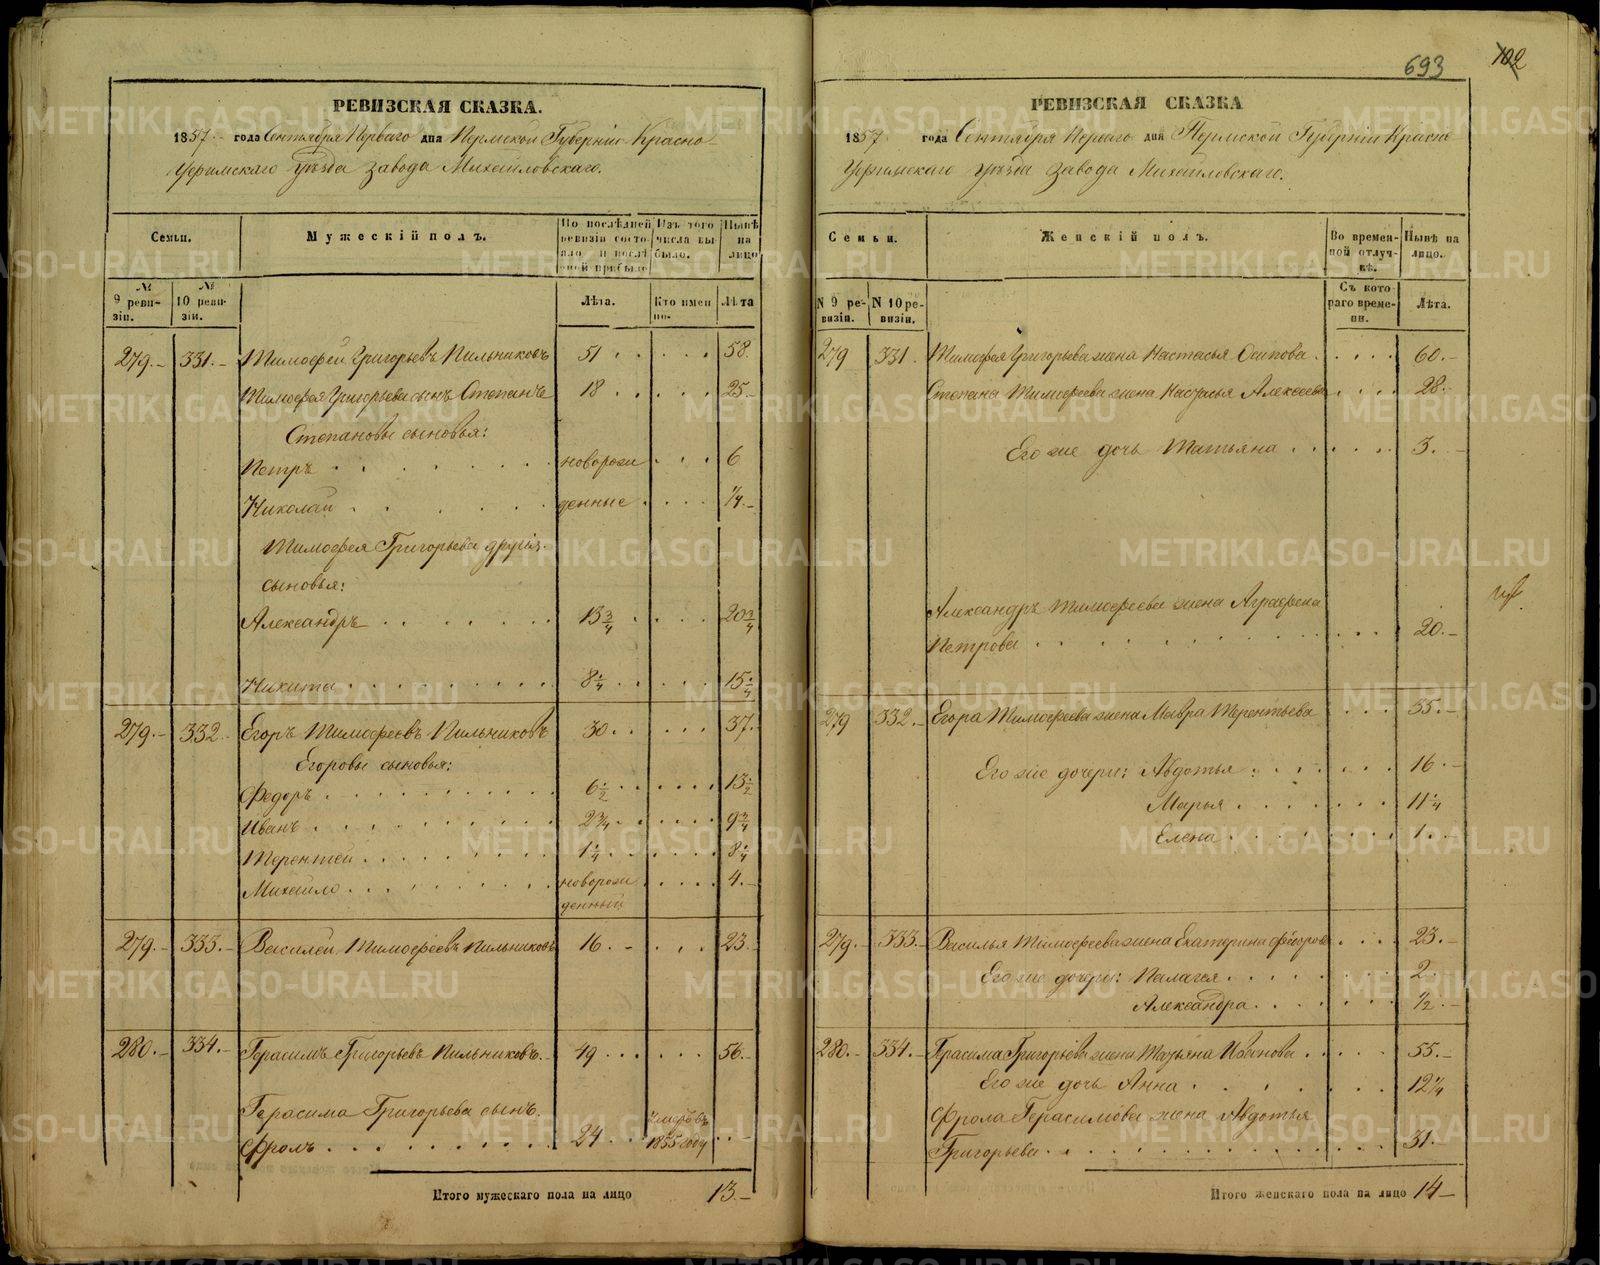 693 102
РЕВИЗСКАЯ СКАЗКА.
1857 года Сентября Перваго дня Пермской Губерніи Красно-
Уфимскаго Уѣзда Завода Михайловскаго.
Семьи.
Мужескій полъ.
По послѣдней ревизіи состояло и послѣ оной прибыло
Изъ того числа выбыло.
Нынѣ на лицо
№ 9 ревизіи.
№ 10 ревизіи.
Лѣта.
Кто именно.
Лѣта
279.- 331.- Тимофей Григорьевъ Пильниковъ 51 . . . . . 58.
Тимофея Григорьева сынъ Степанъ 18 . . . . . 25.-
Степановы сыновья:
Петръ . . . . . новорож . . . 6
Николай . . . . . денные . . . 1/4.-
Тимофея Григорьева другіе
сыновья:
Александръ . . . . . 13 3/4 . . . . 20 3/4
Никита . . . . . 8 1/4 . . . . 15 1/4
279.- 332.- Егоръ Тимофеевъ Пильниковъ 30 . . . . . 37.-
Егоровы сыновья:
Федоръ . . . . . 6 1/2 . . . . . 13 1/2
Иванъ . . . . . 2 3/4 . . . . . 9 3/4
Терентей . . . . . 1 1/4 . . . . . 8 1/4
Михайло . . . . . новорож . . . . . 4.-
денный
279.- 333.- Василей Тимофеевъ Пильниковъ 16.- . . . 23.-
280.- 334.- Герасимъ Григорьевъ Пильниковъ.- 49 . . . . . 56.-
Герасима Григорьева сынъ. Умеръ въ
Фролъ . . . . . 24 . . 1855 году . . -
Итого мужескаго пола на лицо 13.-
РЕВИЗСКАЯ СКАЗКА
1857 года Сентября Перваго дня Пермской Губерніи Красно
Уфимскаго Уѣзда Завода Михайловскаго.
Семьи.
Женскій полъ.
Во временной отлучкѣ.
Нынѣ на лицо.
N 9 ревизіи.
N 10 ревизіи.
Съ котораго времени.
Лѣта.
279 331. Тимофея Григорьева жена Настасья Осипова . . . . . 60.-
Степана Тимофеева жена Настасья Алексеева . . . . 28.-
Его же дочь Татьяна . . . . . 3.-
Александръ Тимофеева жена Аграфена
Петрова . . . . . 20.-
279 332.- Егора Тимофеева жена Мавра Терентьева . . . 35.-
Его же дочери: Авдотья . . . . . 16.-
Марья . . . . . 11 1/4
Елена . . . . . 1.-
279.- 333.- Василья Тимофеева жена Екатерина Федорова . . . . 23.-
Его же дочери: Палагея . . . . . 2.-
Александра . . . . . 1/2.-
280.- 334.- Герасима Григорьева жена Татьяна Иванова . . . . . 55.-
Его же дочь Анна . . . . . 12 1/4
Фрола Герасимова жена Авдотья
Григорьева . . . . . 31.-
Итого женскаго пола на лицо 14-
METRIKI.GASO-URAL.RU